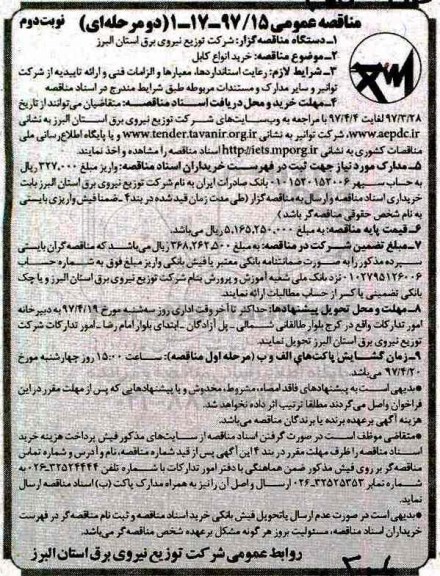 مناقصه عمومی ۹۷/۱۵-۱۷-۱ (دو مرحله‌ای) نوبت دوم
۱ـ دستگاه مناقصه‌گزار: شرکت توزیع نیروی برق استان البرز
۲ـ موضوع مناقصه: خرید انواع کابل
۳ـ شرایط لازم: رعایت استانداردها، معیارها و الزامات فنی و ارائه تاییدیه از شرکت
توانیر و سایر مدارک و مستندات مربوطه طبق شرایط مندرج در اسناد مناقصه
۴ـ مهلت خرید و محل دریافت اسناد مناقصه: متقاضیان می‌توانند از تاریخ
۹۷/۳/۲۸ لغایت ۹۷/۴/۴ با مراجعه به وب‌سایت‌های شرکت توزیع نیروی برق استان البرز به نشانی
www.aepdc.ir، شرکت توانیر به نشانی www.tender.tavanir.org.ir و یا پایگاه اطلاع‌رسانی ملی
مناقصات کشوری به نشانی http://iets.mporg.ir اسناد مناقصه را مشاهده و اخذ نمایند.
۵ـ مدارک مورد نیاز جهت ثبت در فهرست خریداران اسناد مناقصه: واریز مبلغ ۳۲۷,۰۰۰ ریال
به حساب سپهر ۰۱۰۱۵۲۰۱۵۲۰۰۶ بانک صادرات ایران به نام شرکت توزیع نیروی برق استان البرز بابت
خریداری اسناد مناقصه و ارسال به مناقصه گزار (طی مدت زمان قید شده در بند ۴ـ ضمنا فیش واریزی بایستی
به نام شخص حقوقی مناقصه‌گر باشد)
۶ـ قیمت پایه مناقصه: به مبلغ ۵,۱۶۵,۲۵۰,۰۰۰ ریال می‌باشد.
۷ـ مبلغ تضمین شرکت در مناقصه: به مبلغ ۳۶۸,۲۶۲,۵۰۰ ریال می‌باشد که مناقصه‌گران بایستی
سپرده مذکور را به صورت ضمانتنامه بانکی معتبر یا فیش بانکی واریز مبلغ فوق به شماره حساب
۰۱۰۲۷۹۵۱۲۶۰۰۶ نزد بانک ملی شعبه آموزش و پرورش بنام شرکت توزیع نیروی برق استان البرز و یا چک
بانکی تضمینی یا کسر از حساب مطالبات ارائه نمایند.
۸ـ مهلت و محل تحویل پیشنهادها: حداکثر تا آخر وقت اداری روز سه‌شنبه مورخ ۹۷/۴/۱۹ به دبیرخانه
امور تدارکات واقع در کرج بلوار طالقانی شمالی ـ پل آزادگان ـ ابتدای بلوار امام رضا ـ امور تدارکات شرکت
توزیع نیروی برق استان البرز تحویل نمایند.
۹ـ زمان گشایش پاکت‌های الف و ب (مرحله اول مناقصه): ساعت ۱۵:۰۰ روز چهارشنبه مورخ
۹۷/۴/۲۰ می‌باشد.
●بدیهی است به پیشنهادهای فاقد امضاء، مشروط، مخدوش و یا پیشنهادهایی که پس از مهلت مقرر در این
فراخوان واصل می‌گردند مطلقا ترتیب اثر داده نخواهد شد.
هزینه آگهی برعهده برنده یا برندگان مناقصه می‌باشد.
●متقاضی موظف است در صورت گرفتن اسناد مناقصه از سایت‌های مذکور فیش پرداخت هزینه خرید
اسناد مناقصه را ظرف مهلت مقرر در بند ۴ این آگهی پس از قید شماره مناقصه، نام و آدرس و شماره تماس
مناقصه‌گر بر روی فیش مذکور ضمن هماهنگی با دفتر امور تدارکات با شماره تلفن ۳۲۵۲۴۴۴۴-۰۲۶ به
شماره نمابر ۳۲۵۲۵۳۵۳-۰۲۶ ارسال و اصل آن را نیز به همراه مدارک پاکت (ب) اسناد مناقصه ارسال
نماید.
●بدیهی است در صورت عدم ارسال یا تحویل فیش بانکی خرید اسناد مناقصه و ثبت نام مناقصه‌گر در فهرست
خریداران اسناد مناقصه، مسئولیت بروز هر گونه مشکل برعهده شخص مناقصه‌گر می‌باشد.
روابط عمومی شرکت توزیع نیروی برق استان البرز